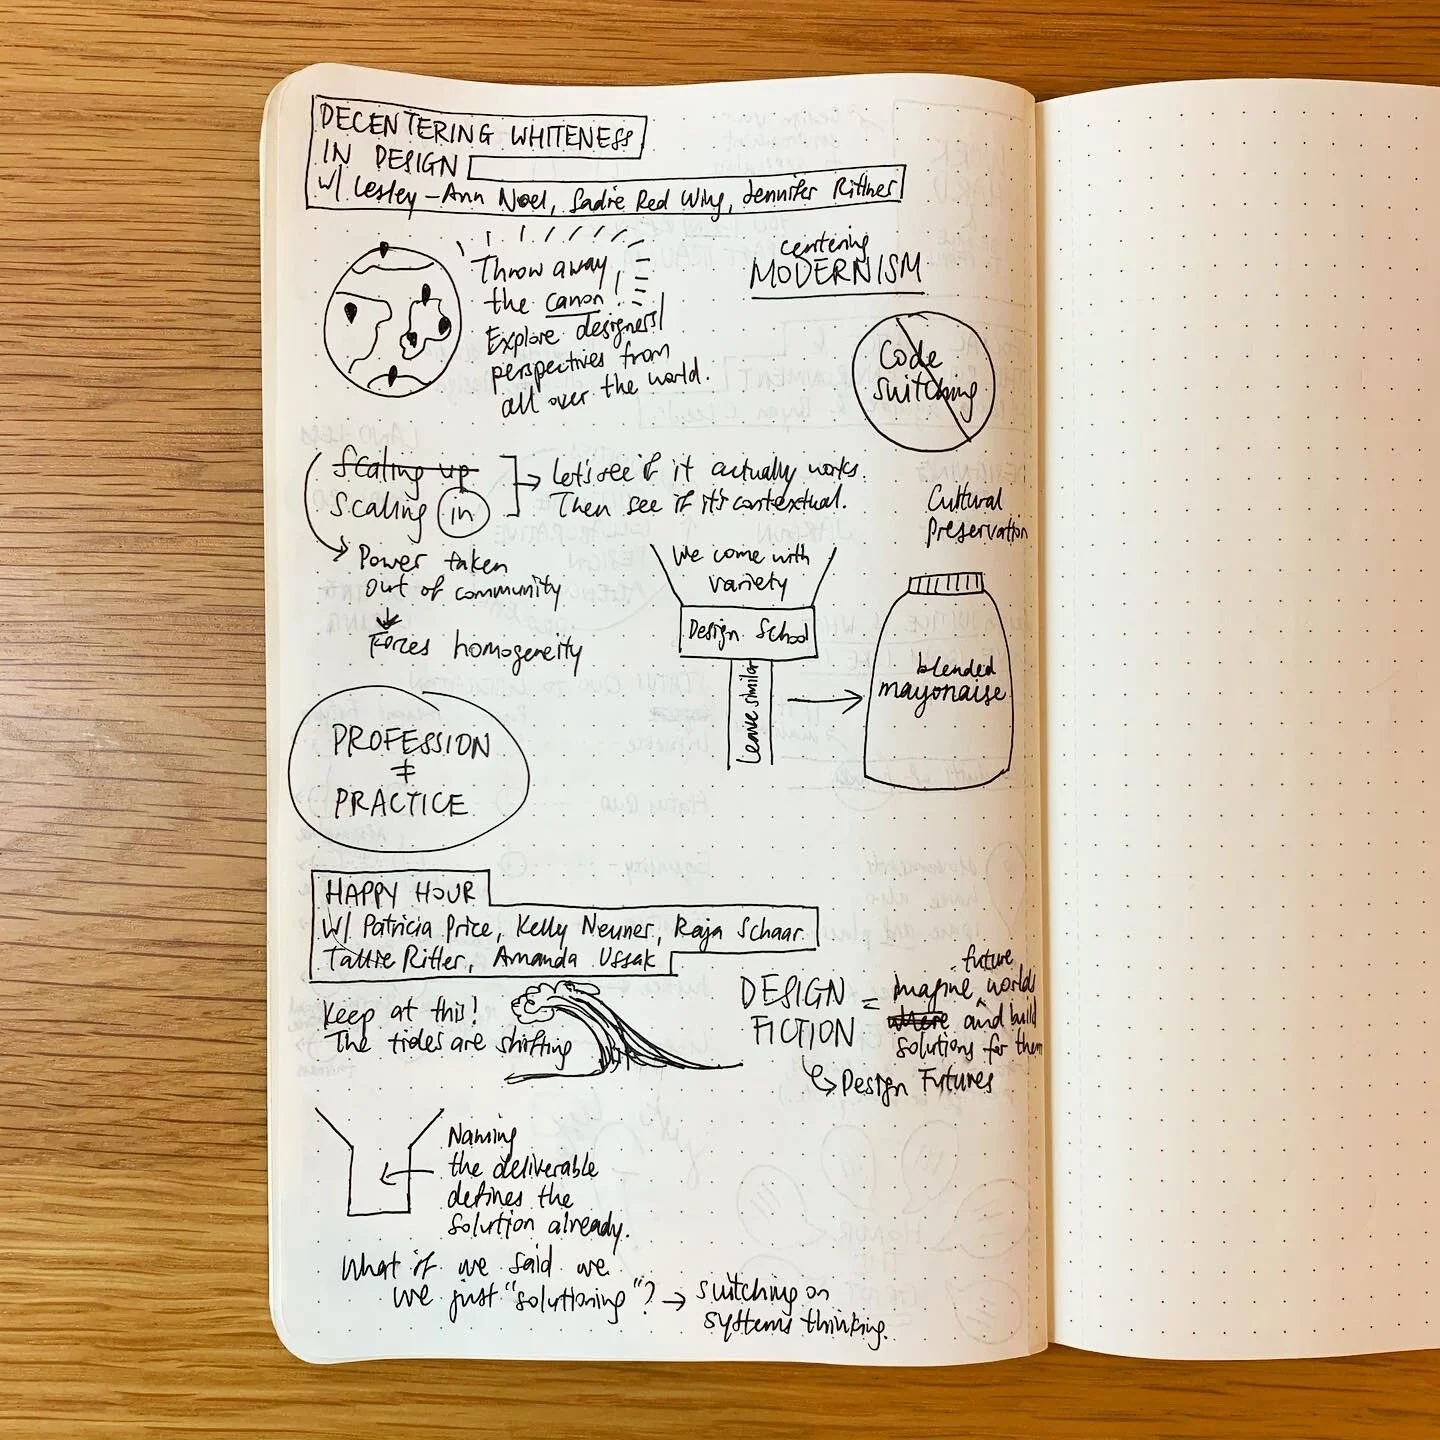 DECENTERING WHITENESS
IN DESIGN
W/ Lesley-Ann Noel, Sadie Red Wing, Jennifer Rittner
Throw away
the canon!
Explore designers/
perspectives from
all over the world.
centering
MODERNISM
Code
switching
Scaling up
Scaling in
Let's see if it actually works.
Then see if it's contextual.
Power taken
out of community
Forces homogeneity
Cultural
preservation
We come with
variety
Design School
Leave similar
blended
mayonaise
PROFESSION
≠
PRACTICE
HAPPY HOUR
W/ Patricia Price, Kelly Neuner, Raja Schaar
Tallie Ritter, Amanda Ussak
Keep at this!
The tides are shifting
DESIGN
FICTION
=
future
imagine worlds
where and build
solutions for them
Design Futures
Naming
the deliverable
defines the
solution already.
What if we said we
we just "solutioning"?
switching on
systems thinking.